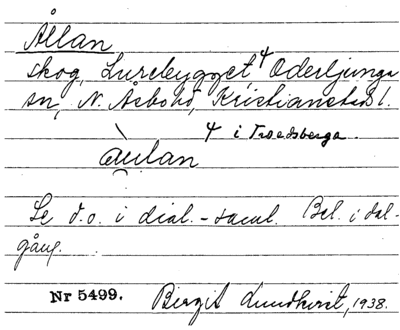 Ållan
skog, Lürebygget, 4 Oderljunga
sn, N. Åsbohd, Kristianstads l.
4 i Troedsberga.
åulan
Se d.o. i dial.-saml. Bel. i dal-
gång.
Nr 5499. Birgit Lundkvist, 1938.